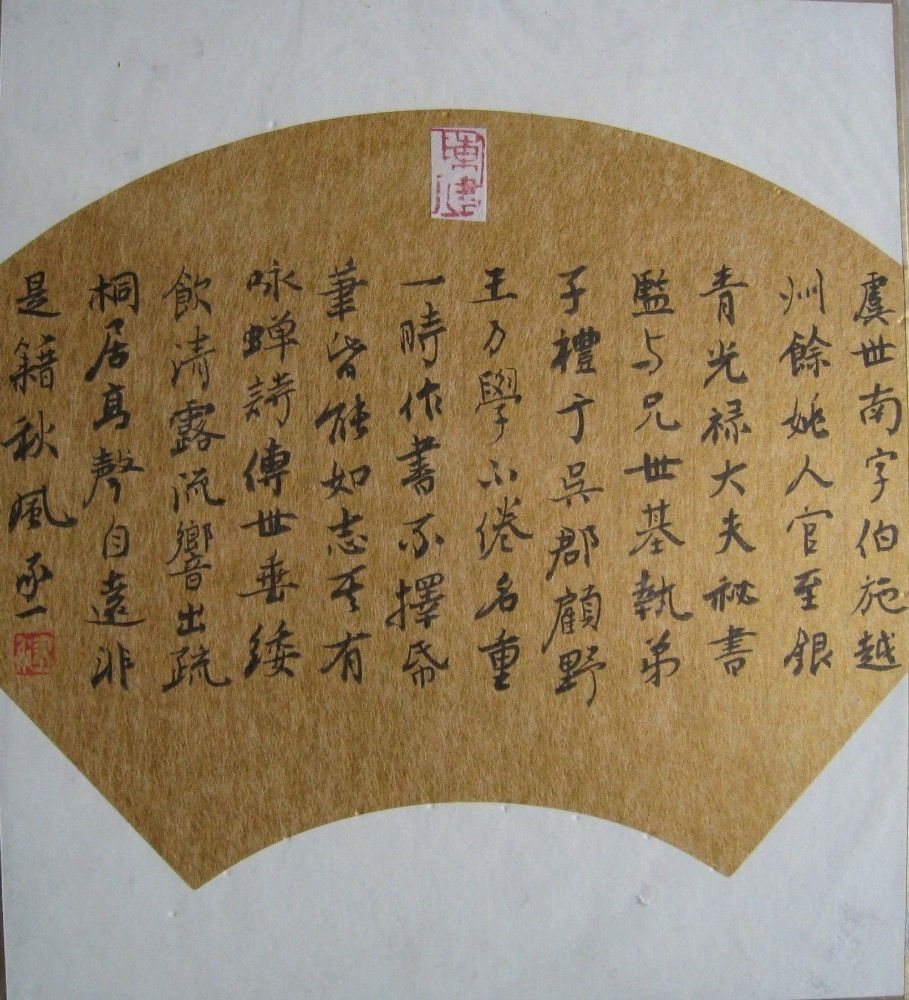 虞世南字伯施越
州餘姚人官至銀
青光禄大夫秘書
監与兄世基執弟
子禮于吳郡顧野
王力學不倦名重
一時作書不擇帋
筆皆能如志其有
咏蝉詩傳世垂緌
飲清露流響出疏
桐居高聲自遠非
是籍秋風